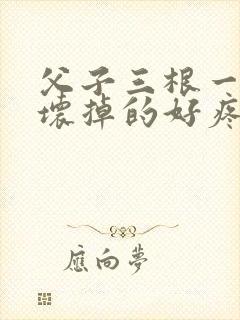 父子三根一
壞掉的好疼
應向夢